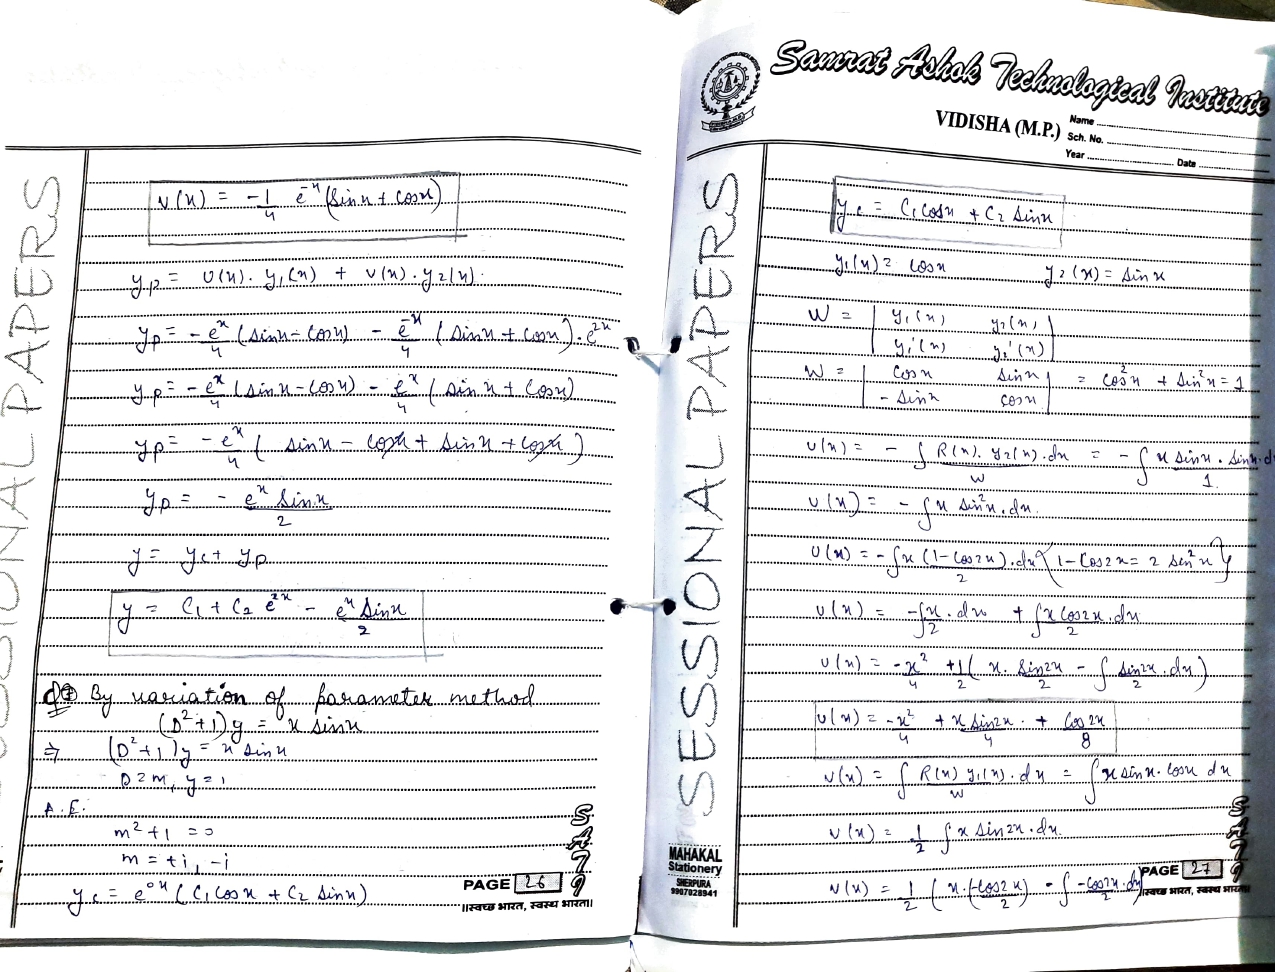 SESSIONAL PAPERS
v(x) = -1/4 e^-x (Sinx + Cosx)
y.p = u(x). y1(x) + v(x). y2(x).
yp = - e^x/4 (Sinx - Cosx) - e^-x/4 (Sinx + Cosx). e^2x
y.p = - e^x/4 (Sinx - Cosx) - e^x/4 (Sinx + Cosx)
yp = - e^x/4 ( Sinx - Cosx + Sinx + Cosx )
yp = - e^x Sinx/2
y = yc + yp
y = C1 + C2 e^2x - e^x Sinx/2
By variation of parameter method
(D²+1)y = x sinx
⇒ (D²+1)y = x sinx
D=m, y=1
A.E.
m²+1 = 0
m = +i, -i
yc = e^0x (C1 Cosx + C2 Sinx)
SATI
PAGE 26
॥स्वच्छ भारत, स्वस्थ भारत॥
Samrat Ashok Technological Institute
VIDISHA (M.P.)
Name
Sch. No.
Year
Date
SESSIONAL PAPERS
y.c = C1 Cosx + C2 Sinx
y1(x) = Cosx y2(x) = Sinx
W = | y1(x) y2(x) |
| y1'(x) y2'(x) |
W = | Cosx Sinx | = Cos²x + Sin²x = 1
| -Sinx Cosx |
u(x) = - ∫ R(x). y2(x).dx/W = - ∫ x Sinx. Sinx.d/1
u(x) = - ∫x Sin²x.dx.
u(x) = - ∫x (1-Cos2x)/2 .dx {1-Cos2x = 2 Sin²x}
u(x) = -∫x/2 .dx + ∫x Cos2x/2 .dx
u(x) = -x²/4 + 1/2 ( x. Sin2x/2 - ∫ Sin2x/2 .dx )
u(x) = -x²/4 + x Sin2x/4 + Cos2x/8
v(x) = ∫ R(x) y1(x)/W .dx = ∫x Sinx. Cosx dx
v(x) = 1/2 ∫ x Sin2x.dx.
v(x) = 1/2 ( x.(-Cos2x)/2 - ∫ -Cos2x/2 .dx)
SATI
MAHAKAL
Stationery
SHERPURA
9907028941
PAGE 27
॥स्वच्छ भारत, स्वस्थ भारत॥